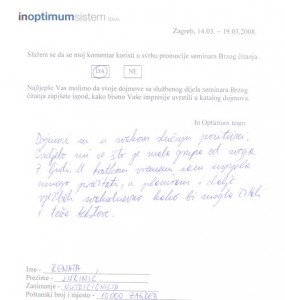 inoptimumsistem d.o.o.
Zagreb, 14.03. – 19.03.2008.
Slažem se da se moj komentar koristi u svrhu promocije seminara Brzog čitanja.
DA NE
Najljepše Vas molimo da svoje dojmove sa službenog dijela seminara Brzog
čitanja zapišete ispod, kako bismo Vaše impresije uvrstili u katalog dojmova.
In Optimum team
Dojmovi su u svakom slučaju pozitivni.
Svidjelo mi se što je mala grupa od svega
7 ljudi. U kratkom vremenu sam uspjela
mnogo pročitati, a planiram i dalje
vježbati svakodnevno kako bi mogla čitati
i teže tekstove.
Ime - RENATA
Prezime -
Zanimanje - NUTRICIONIST
Poštanski broj i mjesto - 10000 ZAGREB